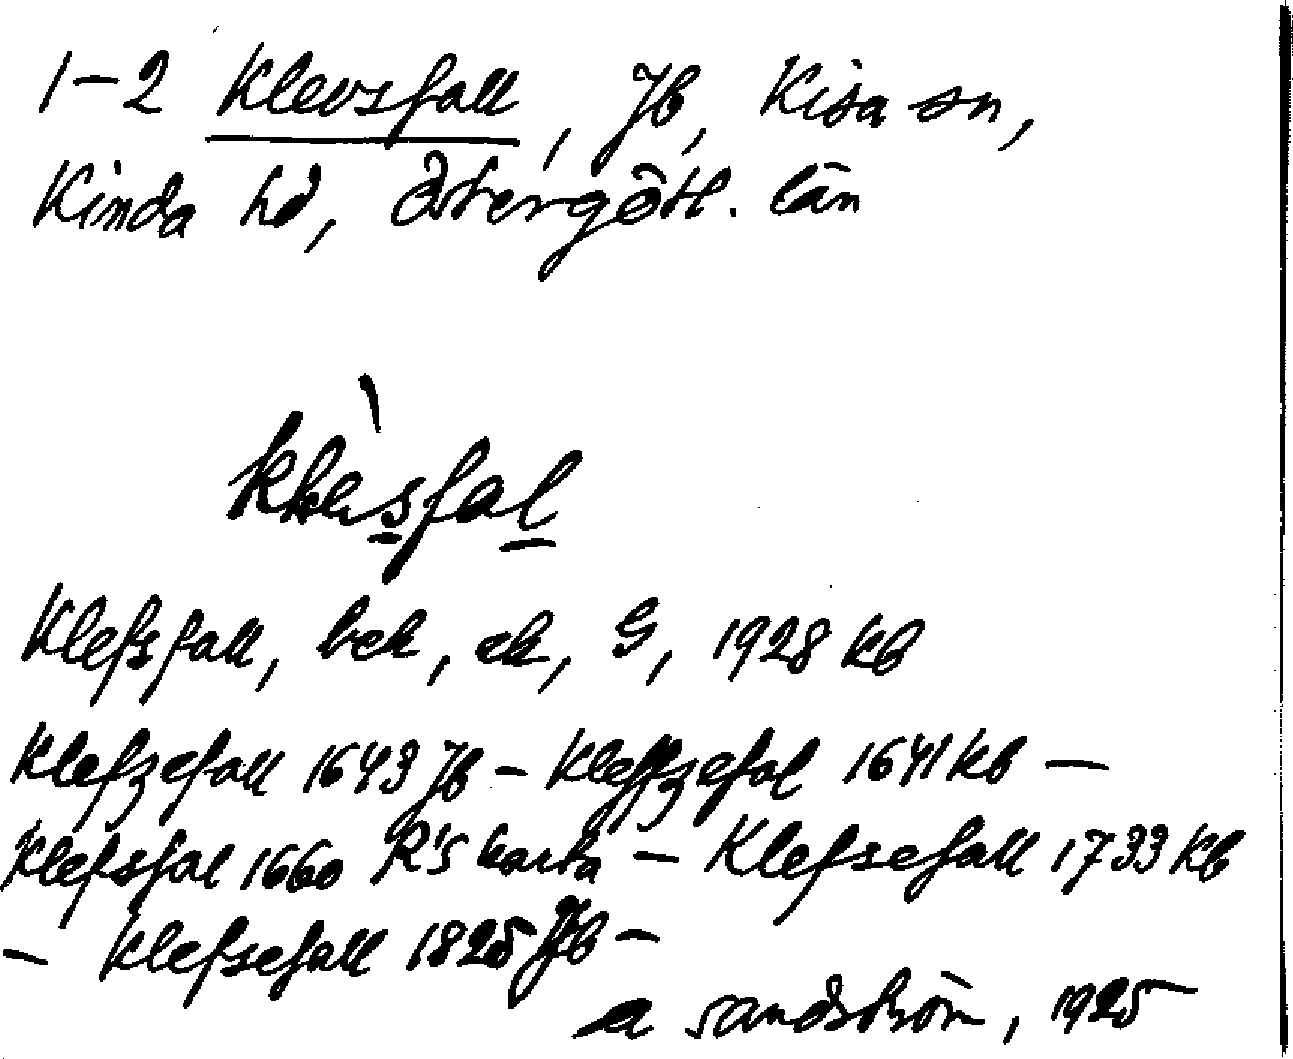 1-2 Klevsfall, Jb, Kisa sn,
Kinda hd, Östergötl. län
Klefsfall, bek, ek, G, 1928 kb
Klefzefall 1643 Jb - Kleffzefal 1641 kb —
Klefsfal 1660 R's karta — Klefsefall 1733 kb
— Klefsefall 1825 Jb —
A Sandström, 1925